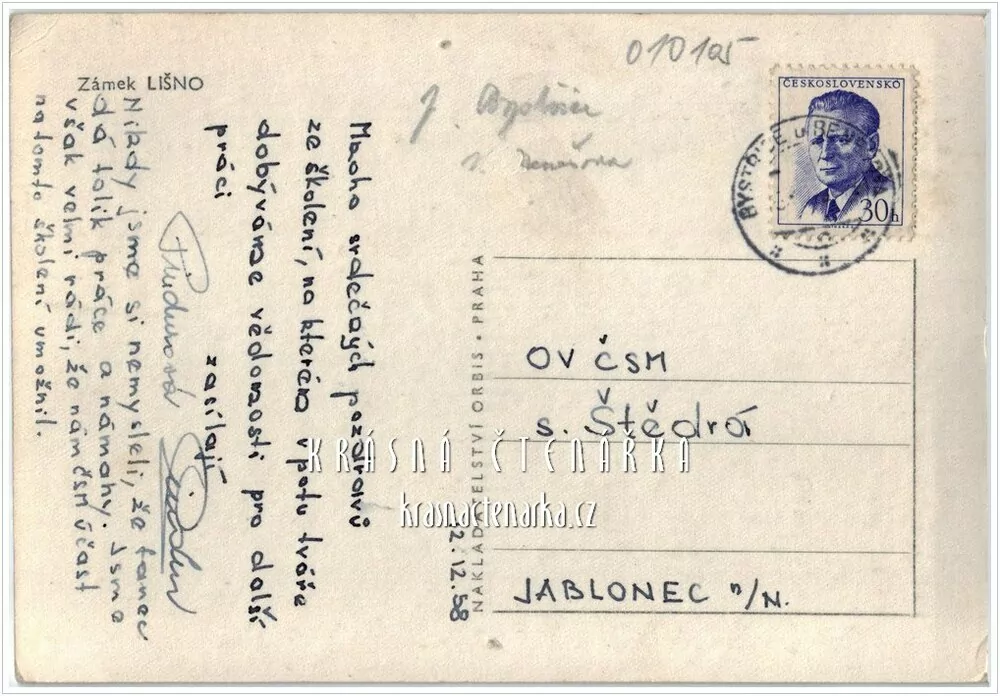 010105
Zámek LIŠNO
ČESKOSLOVENSKO
30h
BYSTŘICE u BENEŠOVA
Mnoho srdečných pozdravů
ze školení, na kterém v potu tváře
dobýváme vědomosti pro další
práci
zasílají
Nikdy jsme si nemysleli, že tanec
dá tolik práce a námahy. Jsme
však velmi rádi, že nám ČSM účast
na tomto školení umožnil.
12.12.58
NAKLADATELSTVÍ ORBIS · PRAHA
OV ČSM
s. Štědrá
JABLONEC n/N.
KRÁSNÁ ČTENÁŘKA
krasnactenarka.cz